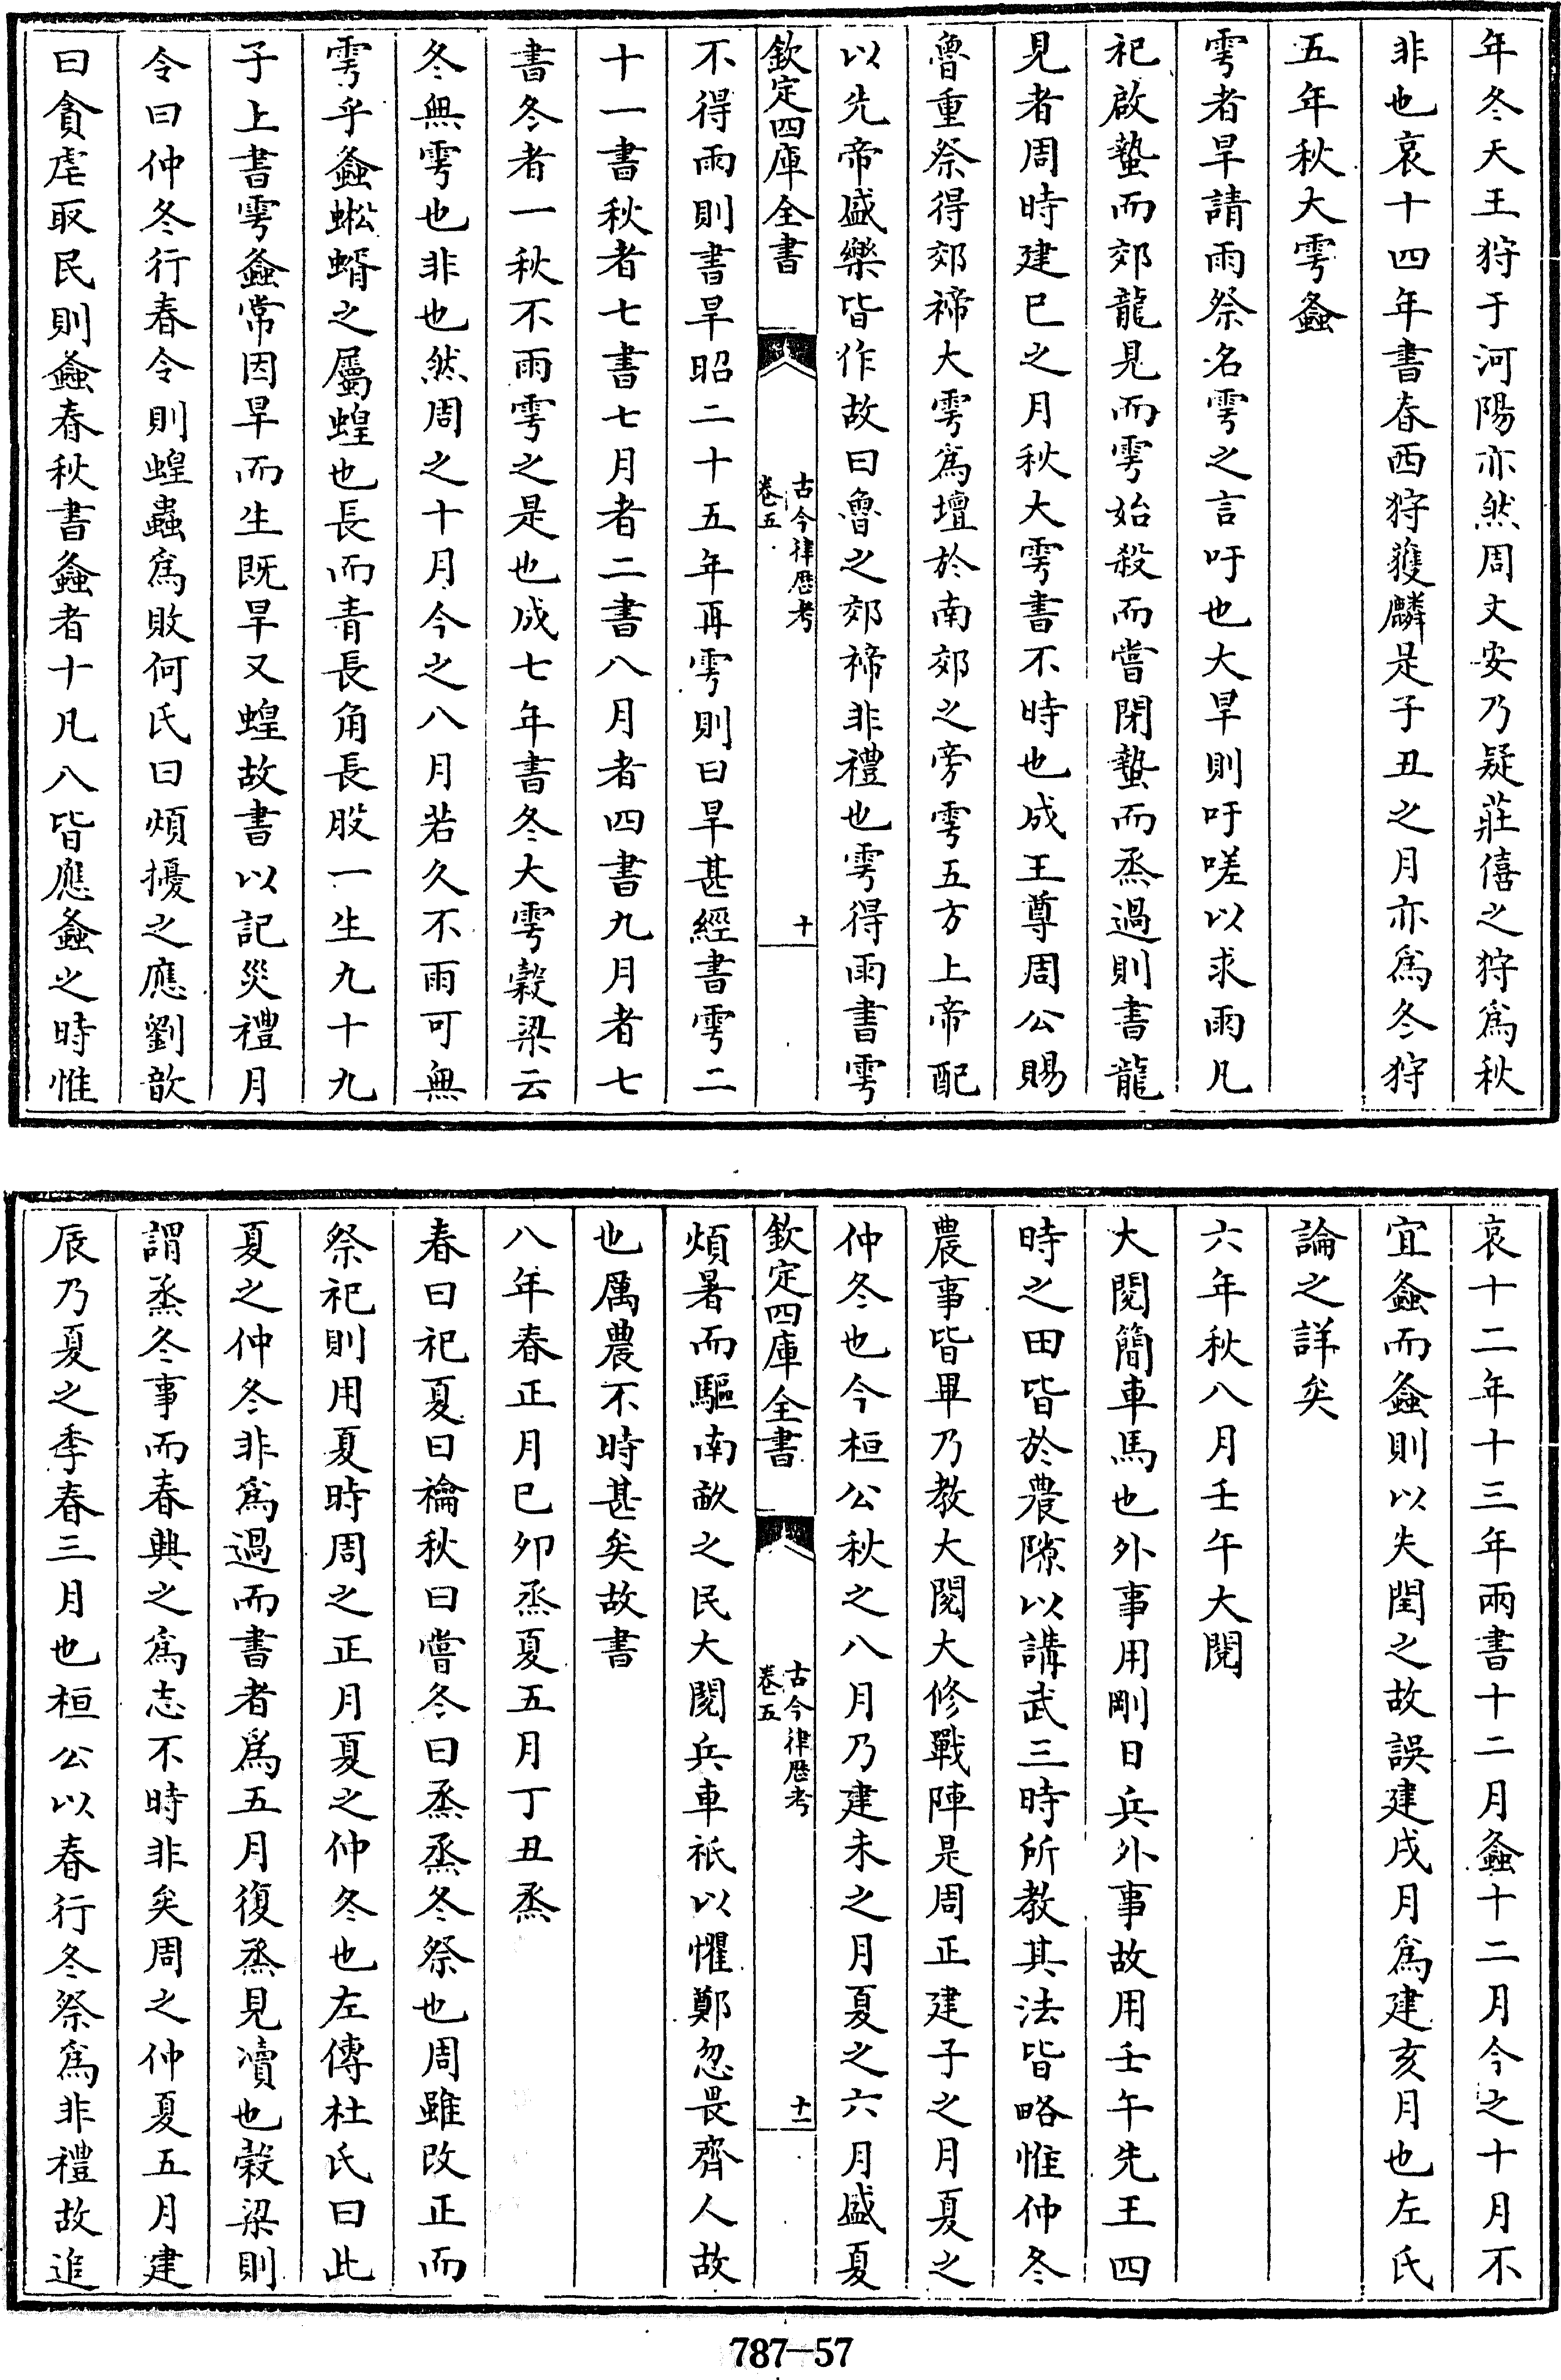 年冬天王狩于河陽亦然周丈安乃疑莊僖之狩爲秋
非也哀十四年書春西狩獲麟是子丑之月亦爲冬狩
五年秋大雩螽
雩者旱請雨祭名雩之言吁也大旱則吁嗟以求雨凡
祀啟蟄而郊龍見而雩始殺而嘗閉蟄而烝過則書龍
見者周時建巳之月秋大雩書不時也成王尊周公賜
魯重祭得郊禘大雩爲壇於南郊之旁雩五方上帝配
以先帝盛樂皆作故曰魯之郊禘非禮也雩得雨書雩
欽定四庫全書
古今律厯考
卷五
十
不得雨則書旱昭二十五年再雩則曰旱甚經書雩二
十一書秋者七書七月者二書八月者四書九月者七
書冬者一秋不雨雩之是也成七年書冬大雩穀梁云
冬無雩也非也然周之十月今之八月若久不雨可無
雩乎螽蜙蝑之屬蝗也長而青長角長股一生九十九
子上書雩螽常因旱而生既旱又蝗故書以記災禮月
令曰仲冬行春令則蝗蟲爲敗何氏曰煩擾之應劉歆
曰貪虐取民則螽春秋書螽者十凡八皆應螽之時惟
哀十二年十三年兩書十二月螽十二月今之十月不
宜螽而螽則以失閏之故誤建戌月爲建亥月也左氏
論之詳矣
六年秋八月壬午大閱
大閱簡車馬也外事用剛日兵外事故用壬午先王四
時之田皆於農隙以講武三時所教其法皆略惟仲冬
農事皆畢乃教大閱大修戰陣是周正建子之月夏之
仲冬也今桓公秋之八月乃建未之月夏之六月盛夏
欽定四庫全書
古今律厯考
卷五
十一
煩暑而驅南畝之民大閱兵車祇以懼鄭忽畏齊人故
也厲農不時甚矣故書
八年春正月己卯烝夏五月丁丑烝
春曰祀夏曰禴秋曰嘗冬曰烝烝冬祭也周雖改正而
祭祀則用夏時周之正月夏之仲冬也左傳杜氏曰此
夏之仲冬非爲過而書者爲五月復烝見凟也穀梁則
謂烝冬事而春興之爲志不時非矣周之仲夏五月建
辰乃夏之季春三月也桓公以春行冬祭爲非禮故追
787—57